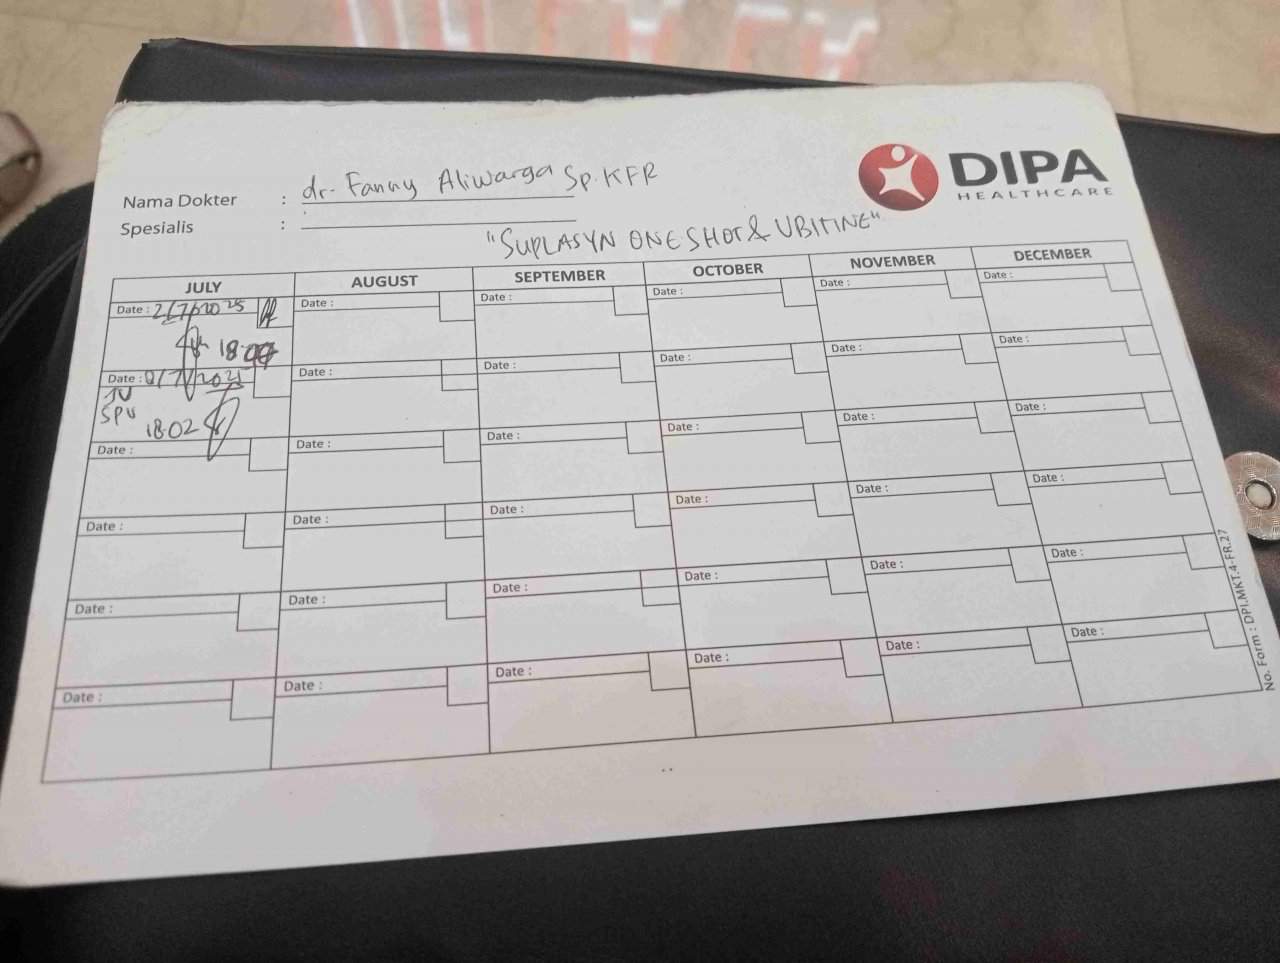 DIPA
HEALTHCARE
Nama Dokter : dr. Fanny Aliwarga Sp.KFR
Spesialis :
"SUPLASYN ONE SHOT & UBITINE"
JULY AUGUST SEPTEMBER OCTOBER NOVEMBER DECEMBER
Date : 2/7/2025 Date : Date : Date : Date : Date :
18
Date : /7/2025 Date : Date : Date : Date : Date :
SPV
18.02
Date : Date : Date : Date : Date : Date :
Date : Date : Date : Date : Date : Date :
Date : Date : Date : Date : Date : Date :
Date : Date : Date : Date : Date : Date :
No. Form : DPI.MKT.4-FR.27